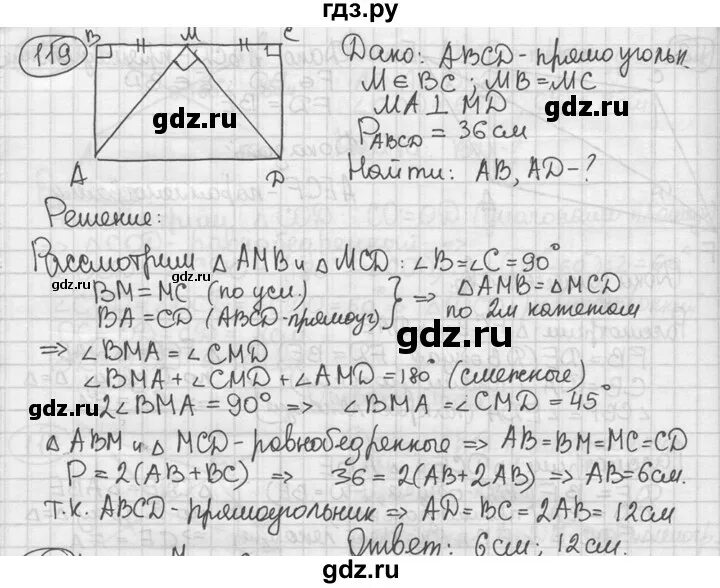 гдз.ру
119
B M C
Дано: ABCD - прямоугольн.
M ∈ BC ; MB = MC
MA ⊥ MD
gdz.ru
P ABCD = 36 см
gdz.ru
A D
Найти: AB, AD - ?
Решение:
Рассмотрим △ AMB и △ MCD : ∠B = ∠C = 90°
gdz.ru
BM = MC (по усл.)
BA = CD (ABCD - прямоуг) } ⇒ △AMB = △MCD
по 2м катетам
gdz.ru
⇒ ∠BMA = ∠CMD
∠BMA + ∠CMD + ∠AMD = 180° (смежные)
gdz.ru
2∠BMA = 90° ⇒ ∠BMA = ∠CMD = 45°
△ ABM и △ MCD - равнобедренные ⇒ AB = BM = MC = CD
P = 2(AB + BC) ⇒ 36 = 2(AB + 2AB) ⇒ AB = 6 см.
т.к. ABCD - прямоугольник ⇒ AD = BC = 2AB = 12 см
gdz.ru
Ответ: 6 см; 12 см.
gdz.ru